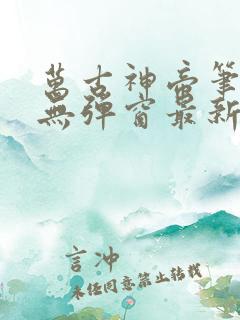 萬古神帝筆
無彈窗最新
言沖
未任同意禁止轉載